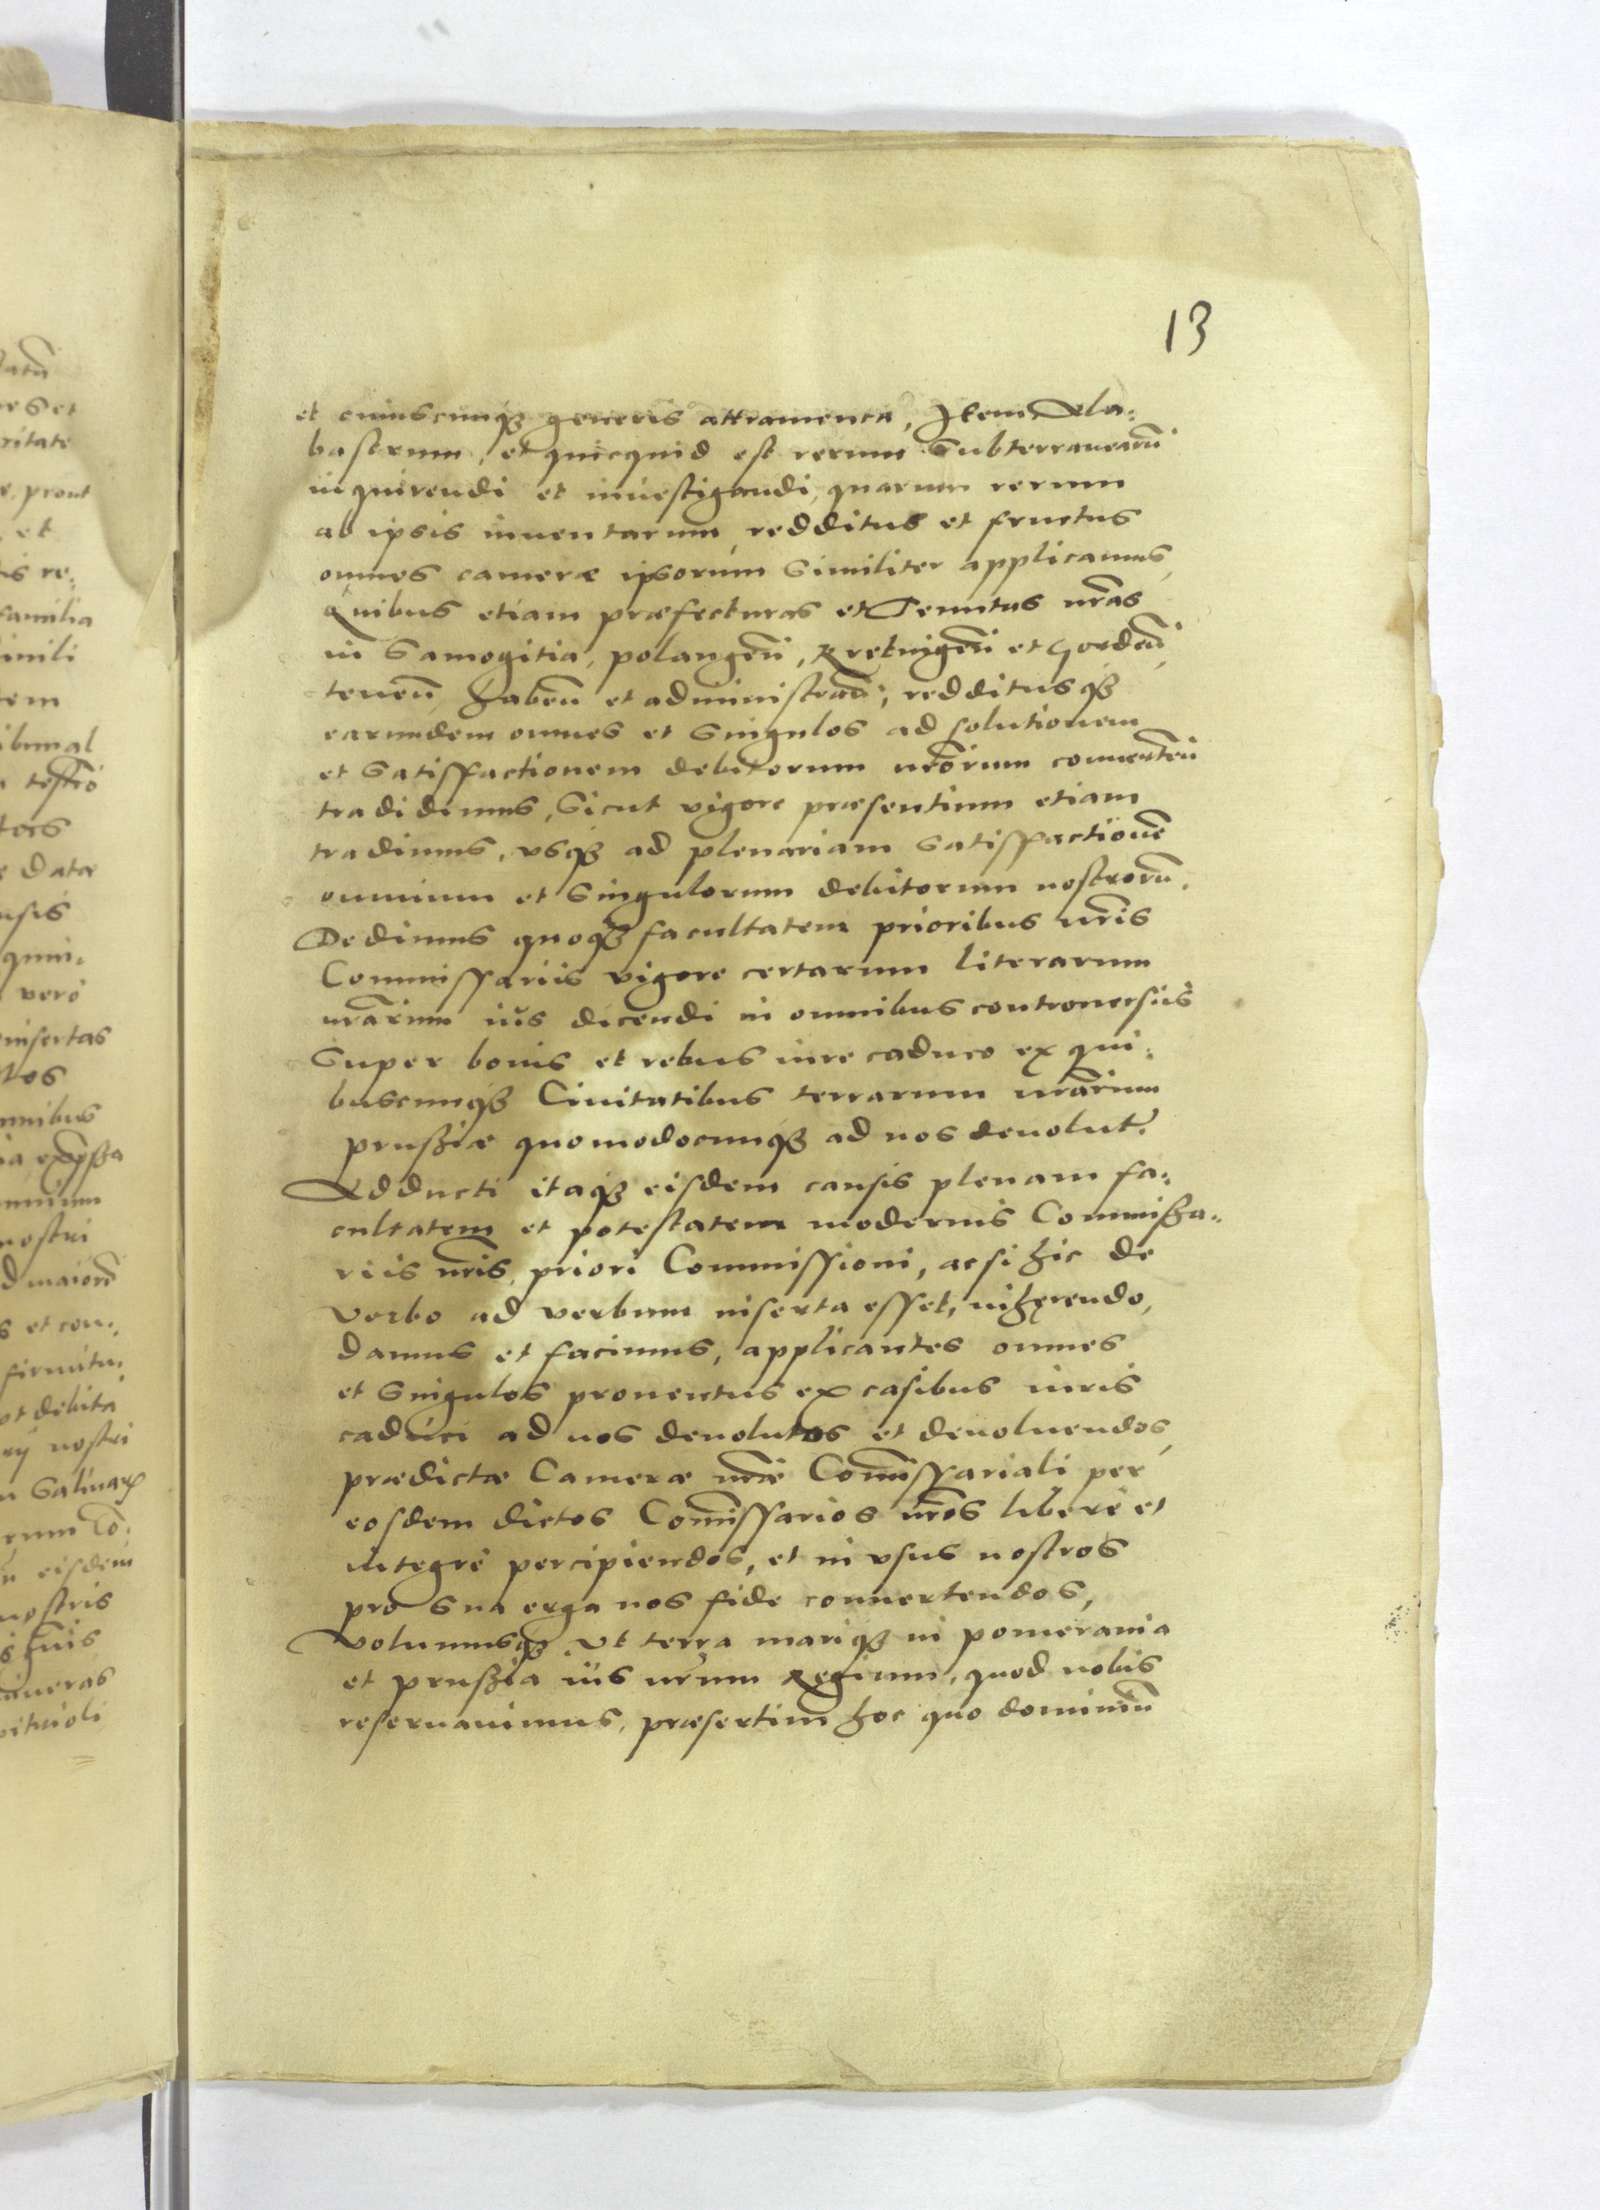 13
et cuiuscunqȝ generis attramenta, Item Ala-
bastrum, et quicquid est rerum subterranearū
inquirendi et inuestigandi, quarum rerum
ab ipsis inuentarum, redditus et fructus
omnes cameræ ipsorum similiter applicamus,
Quibus etiam præfecturas et Tenutas nr̄as
in Samogitia, polangeñ, Kretingeñ et Gordeñ,
teneñ, habeñ et administrañ, redditusqȝ
earundem omnes et singulos ad solutionem
et satisffactionem debitorum nr̄orum conuerteñ
tradidimus, sicut vigore præsentium etiam
tradimus, vsqȝ ad plenariam satisffactionē
omnium et singulorum debitorum nostrorū.
Dedimus quoqȝ facultatem prioribus nr̄is
Commissariis vigore certarum literarum
nr̄arum iŭs dicendi in omnibus controuersiis
super bonis et rebus iure caduco ex qui-
buscunqȝ Ciuitatibus terrarum nr̄arum
prußiæ quomodocunqȝ ad nos deuolut.
Adducti itaqȝ eisdem causis plenam fa-
cultatem et potestatem modernis Commißa-
riis nr̄is, priori Commissioni, ac si hic de
verbo ad verbum inserta esset, inhęrendo,
damus et facimus, applicantes omnes
et singulos prouentus ex casibus iuris
caduci ad nos deuolutos et deuoluendos,
prædictæ Cameræ nr̄æ Com̄issariali per
eosdem dictos Com̄issarios nr̄os liberè et
integrè percipiendos, et in vsus nostros
pro sua erga nos fide conuertendos,
Volumusqȝ, vt terra mariqȝ in pomerania
et prußia iŭs nr̄um Regium, quod nobis
reseruauimus, præsertim hoc quo dominiū